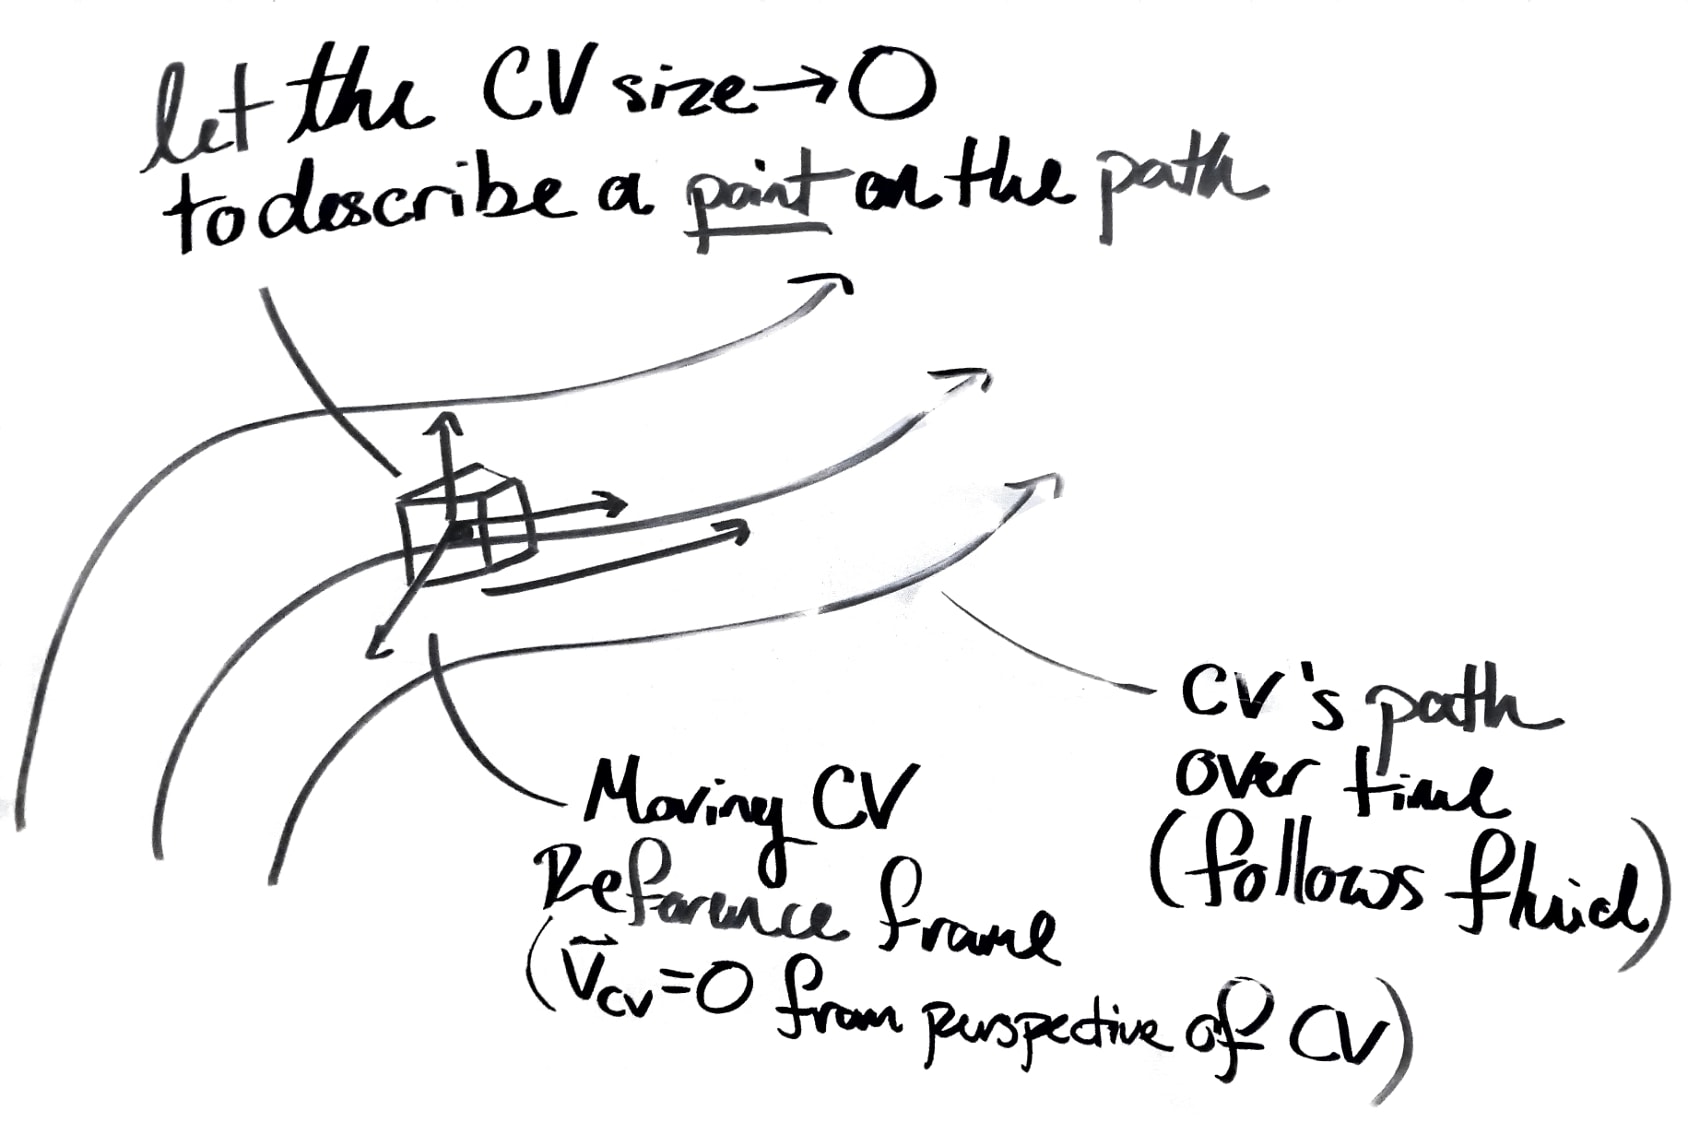 let the CV size→0
to describe a point on the path
CV's path
over time
(follows fluid)
Moving CV
Reference frame
(V⃗cv=0 from perspective of CV)